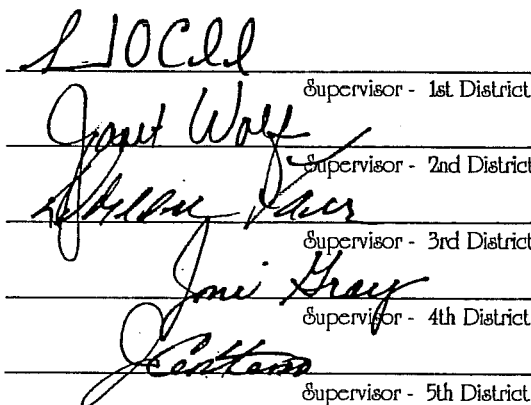 Supervisor - 1st District
Janet Wolf
Supervisor - 2nd District
Supervisor - 3rd District
Joni Gray
Supervisor - 4th District
J Centeno
Supervisor - 5th District